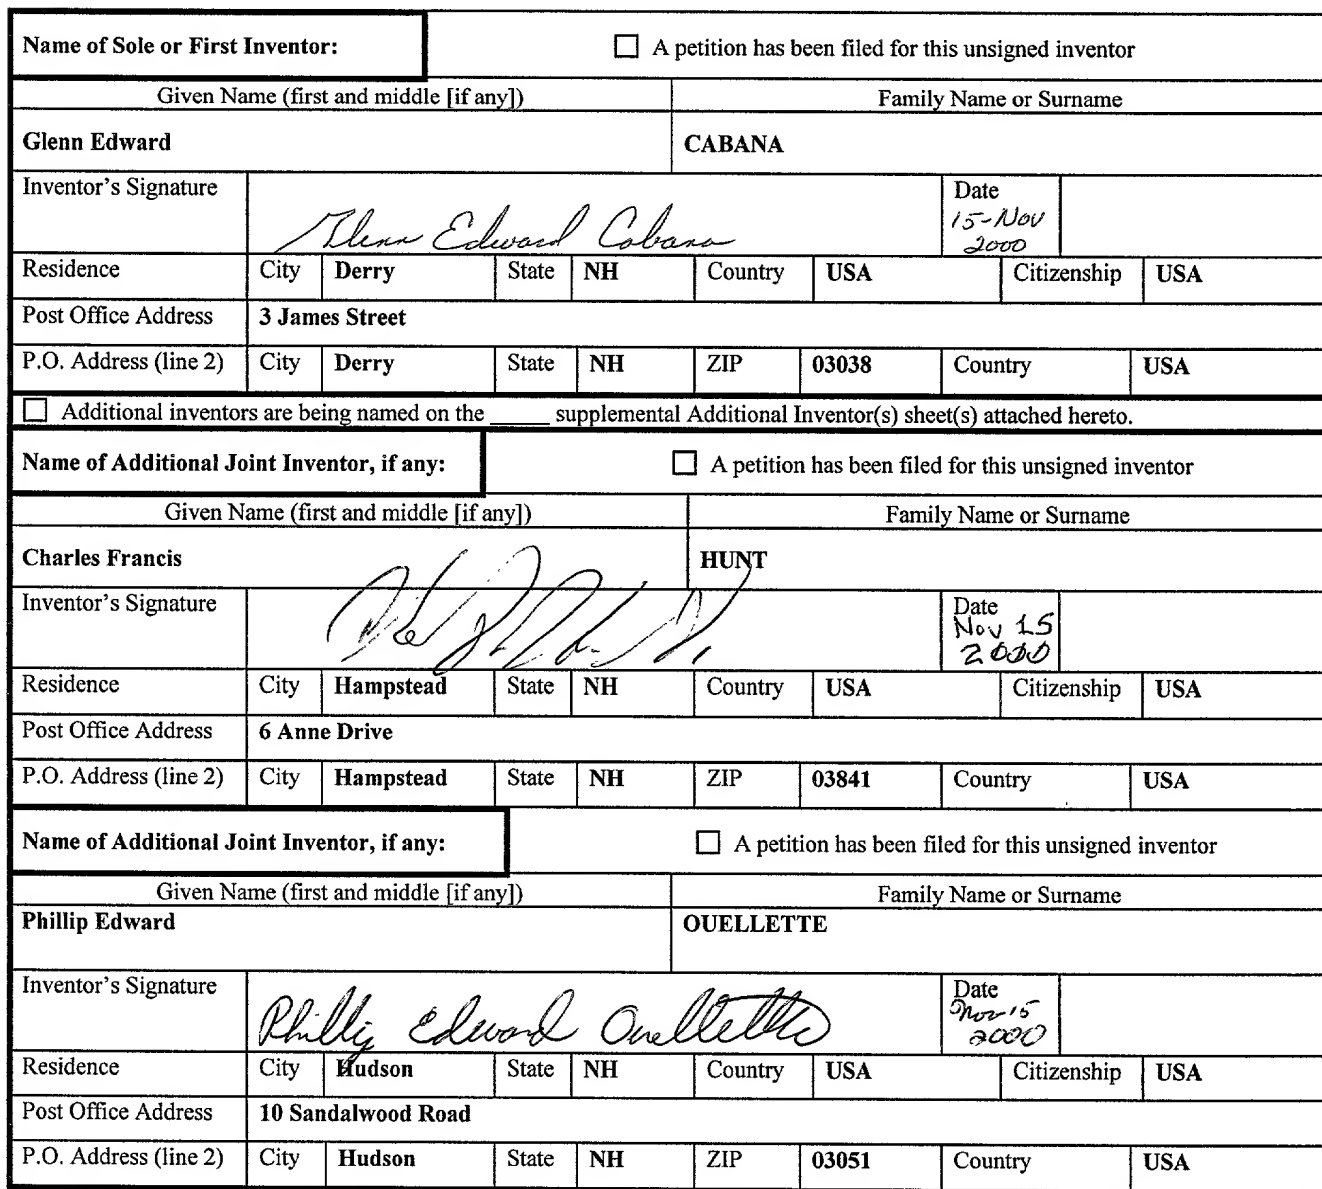 Name of Sole or First Inventor: ☐ A petition has been filed for this unsigned inventor
Given Name (first and middle [if any]) Family Name or Surname
Glenn Edward CABANA
Inventor's Signature Glenn Edward Cabana Date 15-Nov
2000
Residence City Derry State NH Country USA Citizenship USA
Post Office Address 3 James Street
P.O. Address (line 2) City Derry State NH ZIP 03038 Country USA
☐ Additional inventors are being named on the _____ supplemental Additional Inventor(s) sheet(s) attached hereto.
Name of Additional Joint Inventor, if any: ☐ A petition has been filed for this unsigned inventor
Given Name (first and middle [if any]) Family Name or Surname
Charles Francis HUNT
Inventor's Signature Date Nov 15
2000
Residence City Hampstead State NH Country USA Citizenship USA
Post Office Address 6 Anne Drive
P.O. Address (line 2) City Hampstead State NH ZIP 03841 Country USA
Name of Additional Joint Inventor, if any: ☐ A petition has been filed for this unsigned inventor
Given Name (first and middle [if any]) Family Name or Surname
Phillip Edward OUELLETTE
Inventor's Signature Phillip Edward Ouellette Date Nov 15
2000
Residence City Hudson State NH Country USA Citizenship USA
Post Office Address 10 Sandalwood Road
P.O. Address (line 2) City Hudson State NH ZIP 03051 Country USA